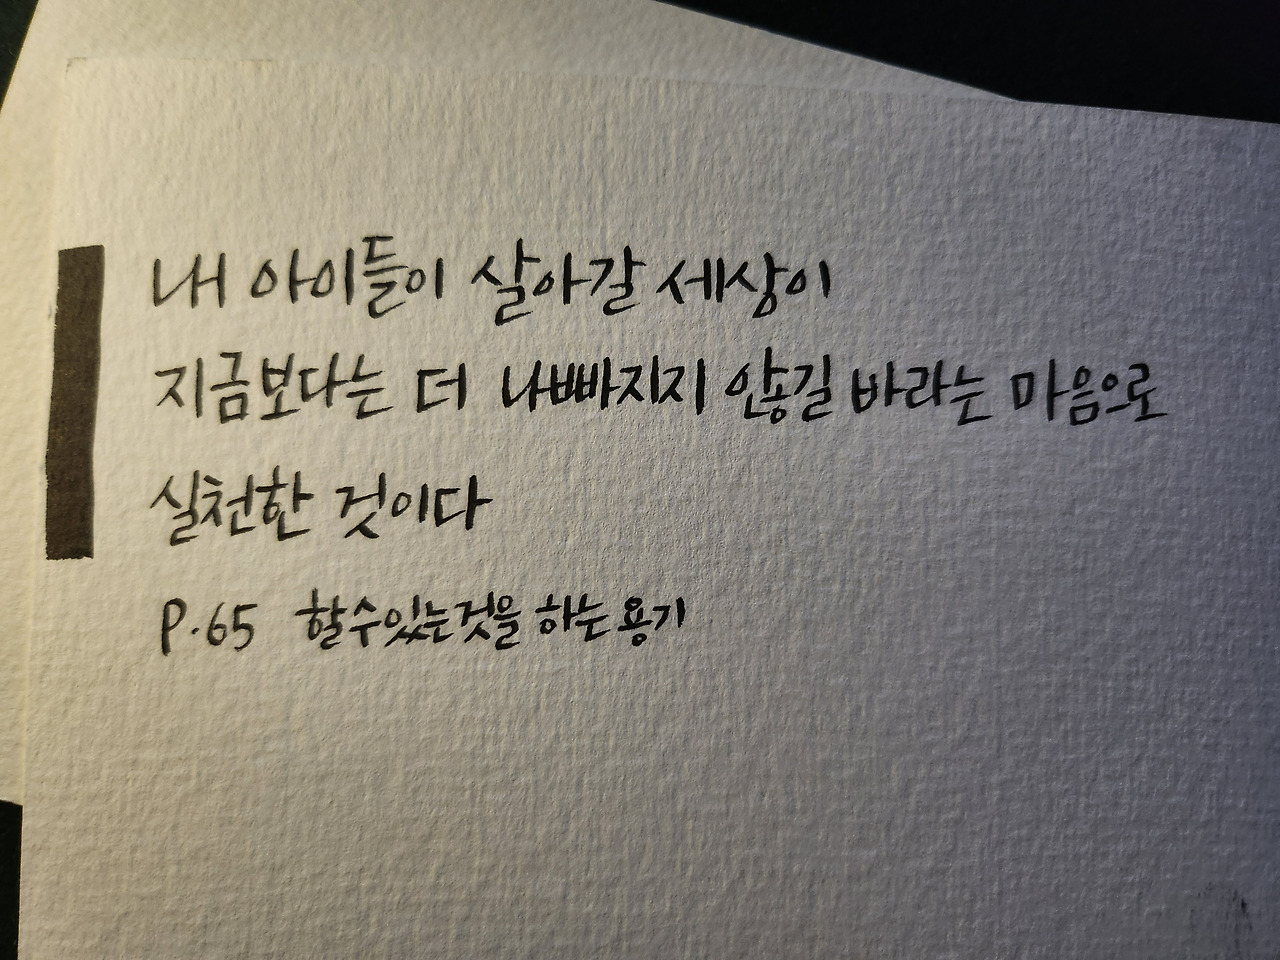 내 아이들이 살아갈 세상이
지금보다는 더 나빠지지 않길 바라는 마음으로
실천한 것이다
P.65 할수있는것을 하는 용기